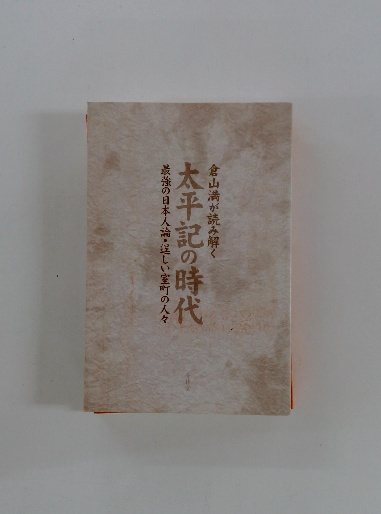 倉山満が読み解く
太平記の時代
最強の日本人論・逞しい室町の人々